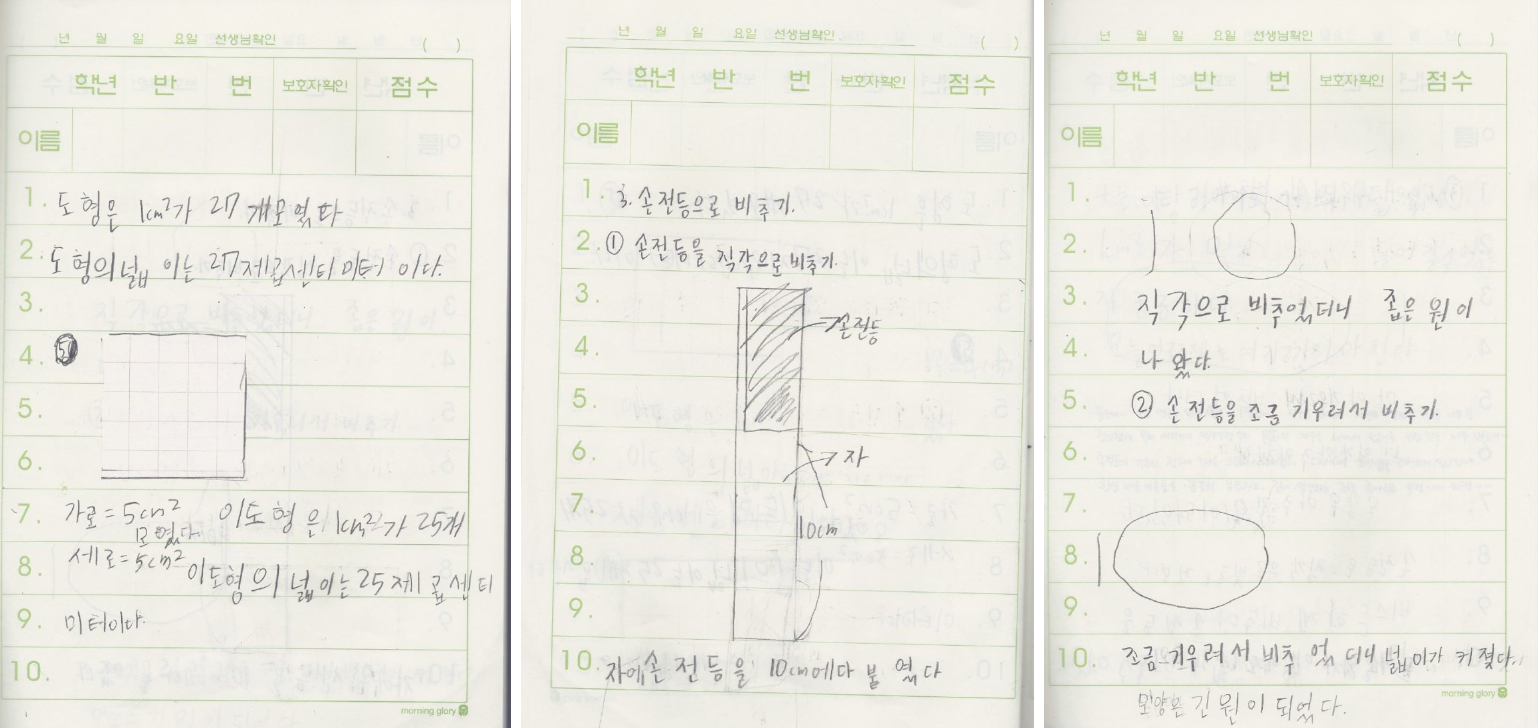 년 월 일 요일 선생님확인 ( )
학년 반 번 보호자확인 점수
이름
1. 도형은 1cm²가 27개모였다
2. 도형의넓이는 27제곱센티미터 이다.
3.
4. 5
5.
6.
7. 가로=5cm² 이도형은 1cm²가 25개
모였다
8. 세로=5cm² 이도형의 넓이는 25제곱센티
9. 미터이다.
10.
morning glory
년 월 일 요일 선생님확인 ( )
학년 반 번 보호자확인 점수
이름
1. 3. 손전등으로 비추기.
2. ① 손전등을 직각으로 비추기.
3.
손전등
4.
5.
6. 자
7.
10cm
8.
9.
10. 자에손전등을 10cm에다 붙였다
년 월 일 요일 선생님확인 ( )
학년 반 번 보호자확인 점수
이름
1.
2.
3. 직각으로 비추었더니 좁은 원이
4. 나왔다.
5. ② 손전등을 조금 기우려서 비추기.
6.
7.
8.
9.
10. 조금 기우려서 비추었더니 넓이가 커졌다.
morning glory
모양은 긴 원이 되었다.